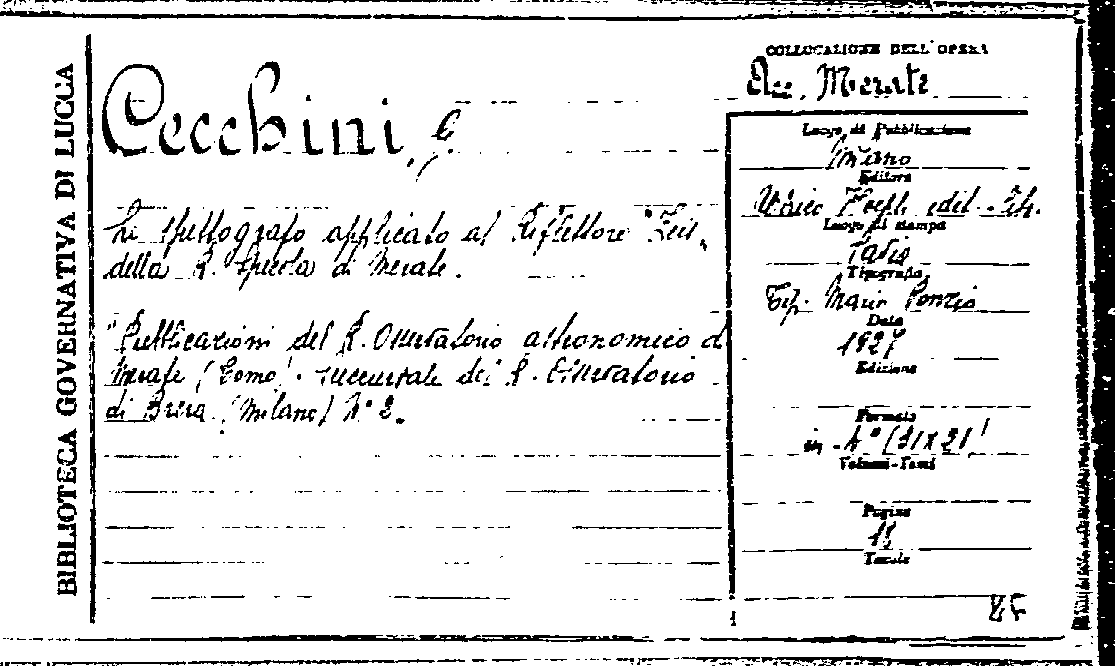 BIBLIOTECA GOVERNATIVA DI LUCCA
Cecchini, G
Lo spettografo applicato al Riflettore "Zeiss"
della R. Specola di Merate.
"Pubblicazioni del R. Osservatorio astronomico di
Merate (Como) - succursale del R. Osservatorio
di Brera (Milano) N° 2.
COLLOCAZIONE DELL'OPERA
Merate
Luogo di Pubblicazione
Milano
Editore
Ulrico Hoepli edit.
Luogo di stampa
Tipografia
Tip. Mario Ponzio
Data
1927
Edizione
Formato
in-4° (31x21)
Volumi-Tomi
Pagine
Tavole